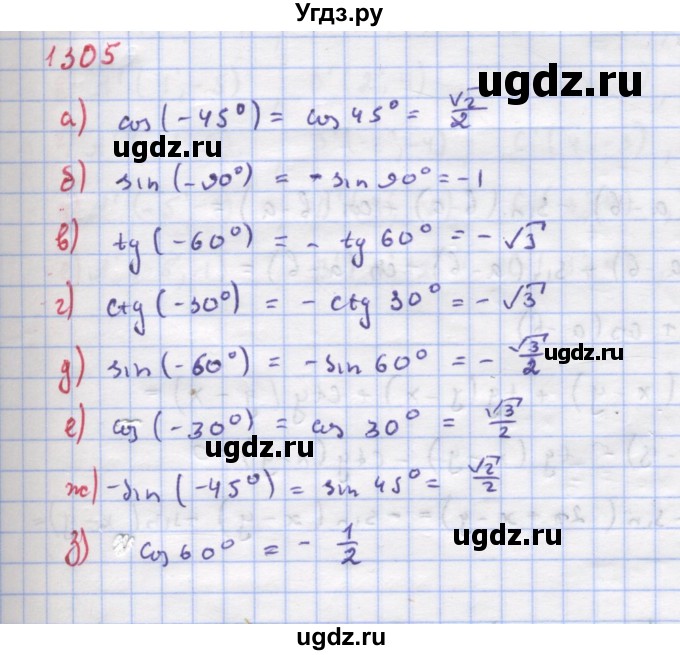 Угдз.ру
1305
ugdz.ru
а) cos(-45°) = cos 45° = √2/2
ugdz.ru
б) sin(-90°) = -sin 90° = -1
в) tg(-60°) = - tg 60° = - √3
ugdz.ru
г) ctg(-30°) = - ctg 30° = - √3
д) sin(-60°) = -sin 60° = - √3/2
ugdz.ru
е) cos(-30°) = cos 30° = √3/2
ugdz.ru
ж) -sin(-45°) = sin 45° = √2/2
з) cos 60° = - 1/2
ugdz.ru
ugdz.ru
ugdz.ru